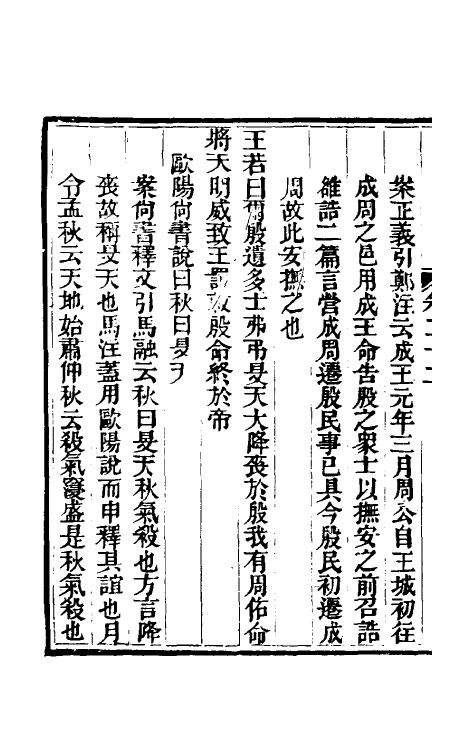 案正義引鄭注云成王元年三月周公自王城初往
成周之邑用成王命告殷之衆士以撫安之前召誥
雒誥二篇言營成周遷殷民事已具今殷民初遷成
周故此安撫之也
王若曰爾殷遺多士弗弔旻天大降喪於殷我有周佑命
將天明威致王罰敕殷命終於帝
歐陽尚書說曰秋曰旻天
案尚書釋文引馬融云秋曰旻天秋氣殺也方言降
喪故稱旻天也馬注蓋用歐陽說而申釋其誼也月
令孟秋云天地始肅仲秋云殺氣寖盛是秋氣殺也